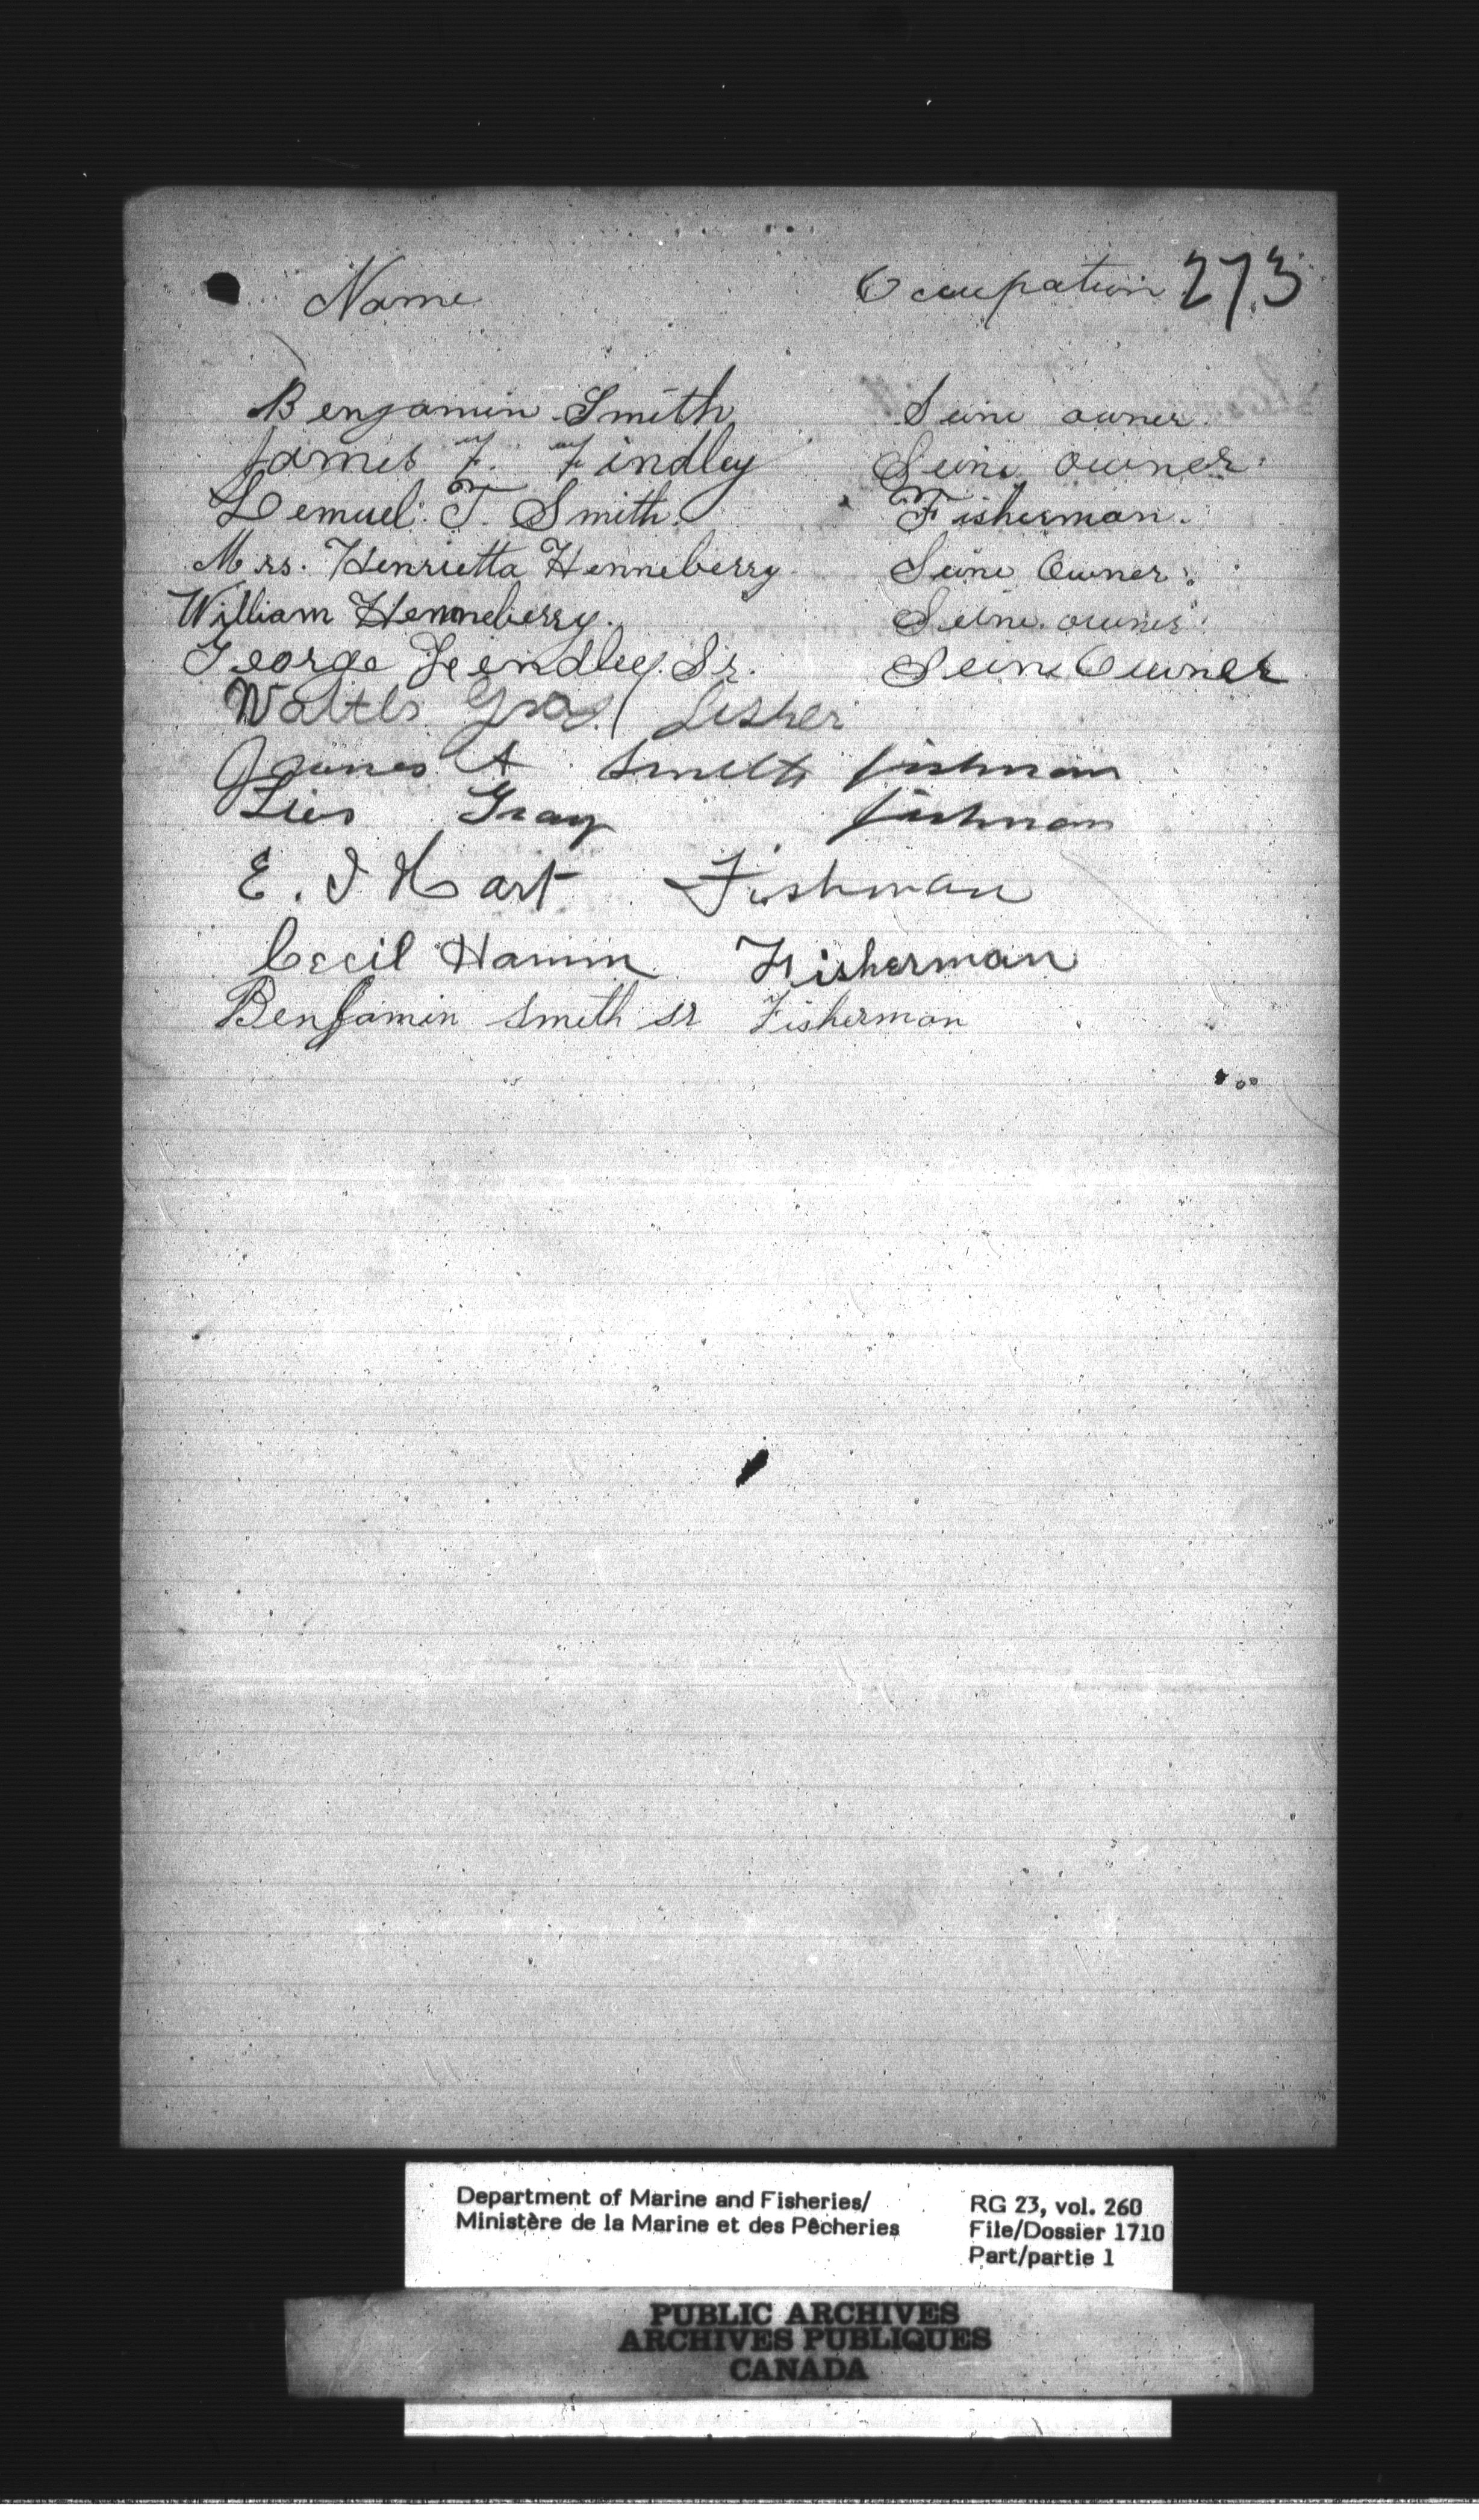 Name Occupation 273
Benjamin Smith Seine owner.
James F. Findley Seine owner.
Lemuel T. Smith. Fisherman.
Mrs. Henrietta Henneberry Seine Owner.
William Henneberry. Seine owner
George Feindley. Sr. Seine Owner
Walter Gray fisher
James A Smith fishman
Gray fishman
E. I Hart Fishman
Cecil Hamm Fisherman
Benjamin Smith sr Fisherman
Department of Marine and Fisheries/ RG 23, vol. 260
Ministère de la Marine et des Pêcheries File/Dossier 1710
Part/partie 1
PUBLIC ARCHIVES
ARCHIVES PUBLIQUES
CANADA